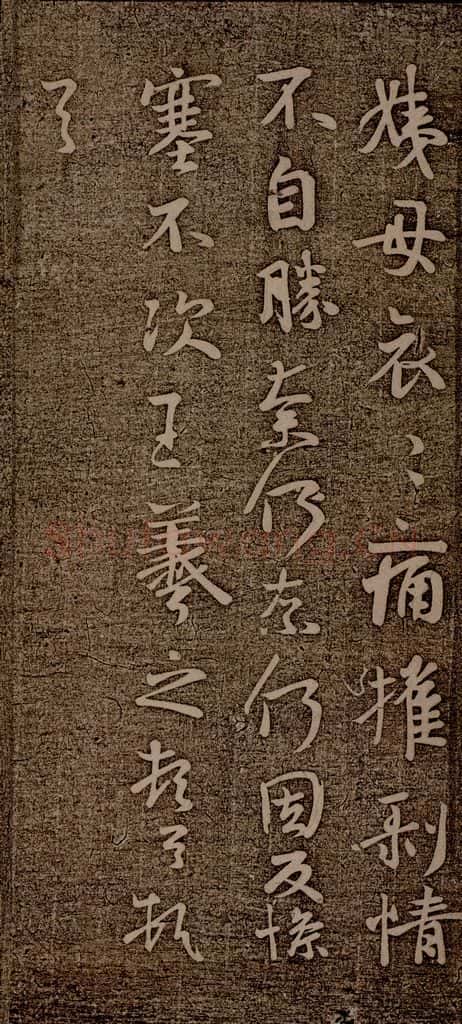 姨母哀〻痛摧剥情
不自勝奈何奈何因反慘
塞不次王羲之頓首頓
首